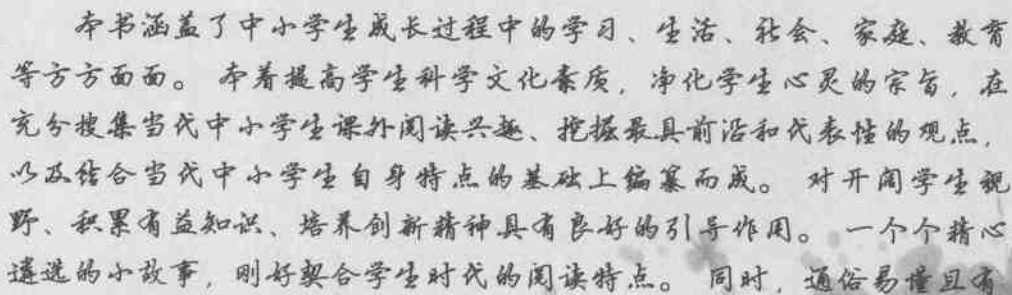 本书涵盖了中小学生成长过程中的学习、生活、社会、家庭、教育
等方方面面。本着提高学生科学文化素质，净化学生心灵的宗旨，在
充分搜集当代中小学生课外阅读兴趣、挖掘最具前沿和代表性的观点，
以及结合当代中小学生自身特点的基础上编纂而成。对开阔学生视
野、积累有益知识、培养创新精神具有良好的引导作用。一个个精心
遴选的小故事，刚好契合学生时代的阅读特点。同时，通俗易懂且有